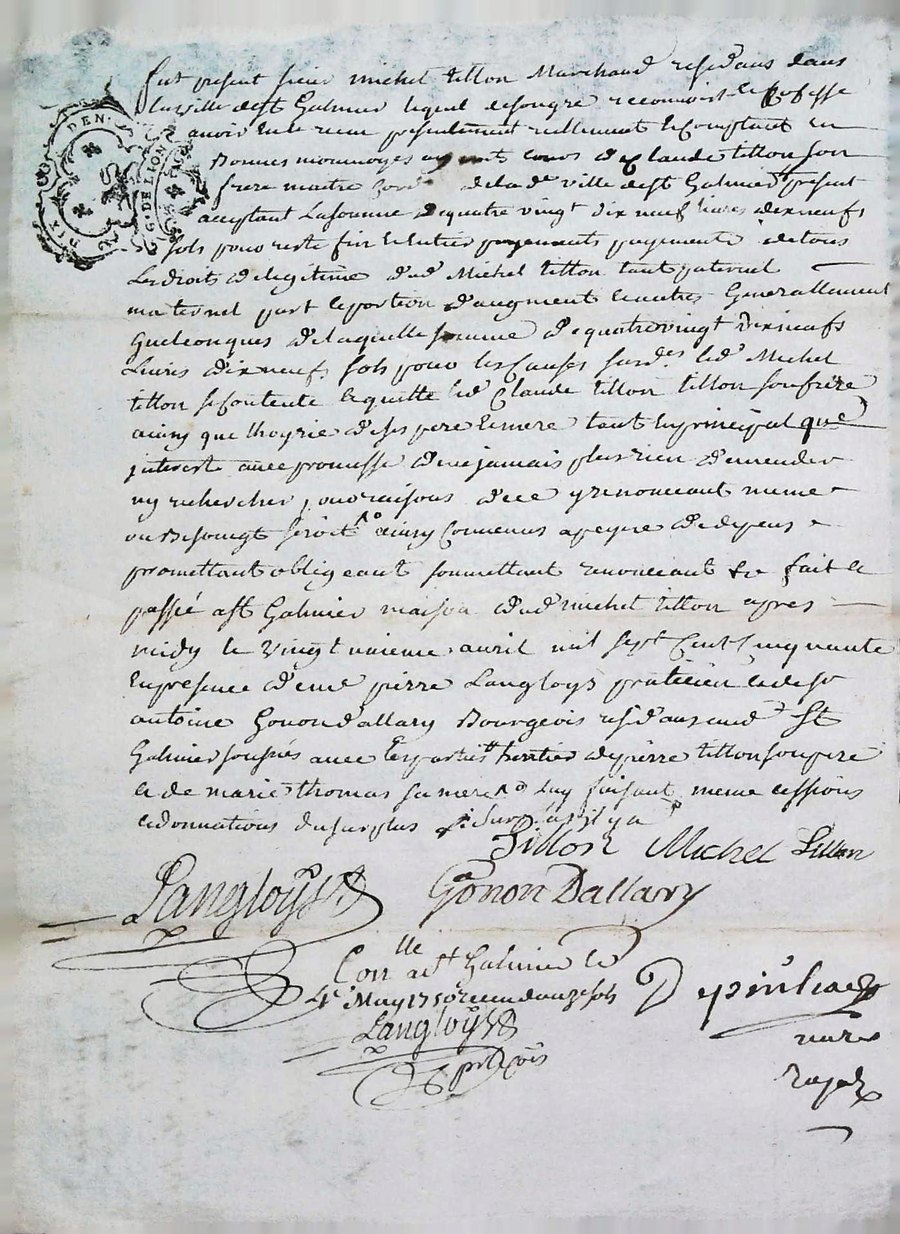 DEN.
G. DE LION
fut present sieur michel tillon Marchand residans dans
la ville de st Galmier lequel de son gre reconnoit et confesse
avoir eu et receu presentement reellement et comptant en
Bonnes monnoyes ayant cours de Claude tillon son
frere maitre de la de ville de st Galmier present
acceptant La somme de quatre vingt dix neuf livres dix neufs
sols pour reste fin et entier payements payement de tous
Les droits de legitime dud Michel tillon tant paternel
maternel part et portion d'augment et autres Generallement
Quelconques de laquelle somme de quatre vingt Dix neufs
Livres dix neufs sols pour les causes surdes led Michel
tillon se contente et quitte led Claude tillon tillon son frere
ainsy que lhoyrie de ses pere et mere tant en principal que
interest avec promesse de ne jamais plus rien demender
ny rechercher pour raisons de ce y renonceant meme
ou Besoingt seroit ainsy Convenus a peyne de depens
promettant obligeant soumettant renonceant &c fait et
passé a st Galmier maison dud michel tillon apres
midy le vingt avril mil sept Cent Cinquante
En presence de me pierre Langloys praticien et de sr
antoine Gonon d'allary Bourgeois residans aud St
Galmier soussnés avec les parties heritier de pierre tillon son pere
et de marie thomas sa mere Luy faisant meme cessions
et donnations du surplus
Tillon Michel Tillon
Langloys Gonon Dallary
Con a st Galmier le
4e May 1750 receu douze sols
Langloys
nore
royal